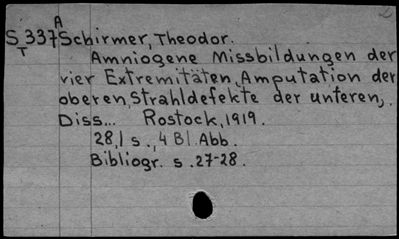 A
S 337 Schirmer, Theodor.
T
Amniogene Missbildungen der
vier Extremitäten, Amputation der
oberen, Strahldefekte der unteren,.
Diss... Rostock, 1919.
28,1 s., 4 Bl. Abb.
Bibliogr. s. 27-28.